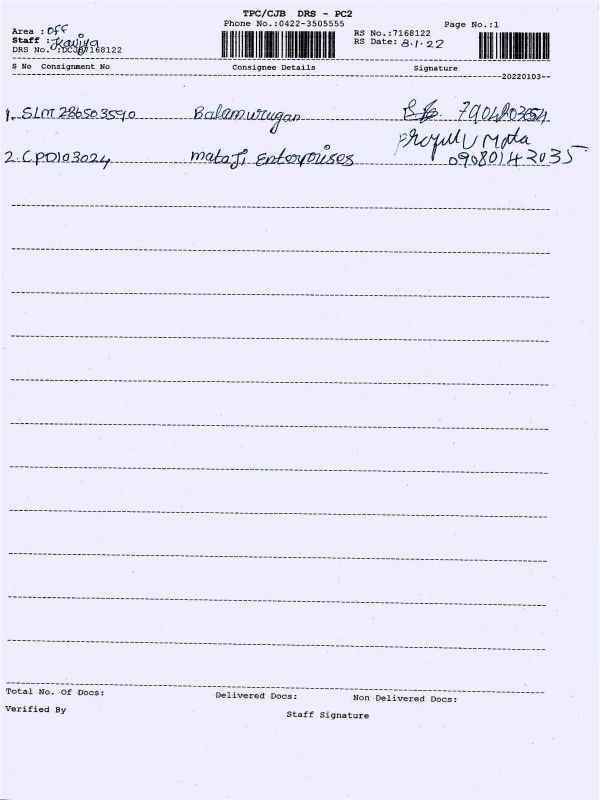 TPC/CJB DRS - PC2
Phone No.:0422-3505555
Page No.:1
Area : Off
RS No.:7168122
Staff : Kaviya
RS Date: 8.1.22
DRS No. :DCJB7168122
S No Consignment No Consignee Details Signature
20220103
1. SLM286503590 Balamurugan
2. CPD103024 Mataji Enterprises 09080142035
Total No. Of Docs: Delivered Docs: Non Delivered Docs:
Verified By
Staff Signature